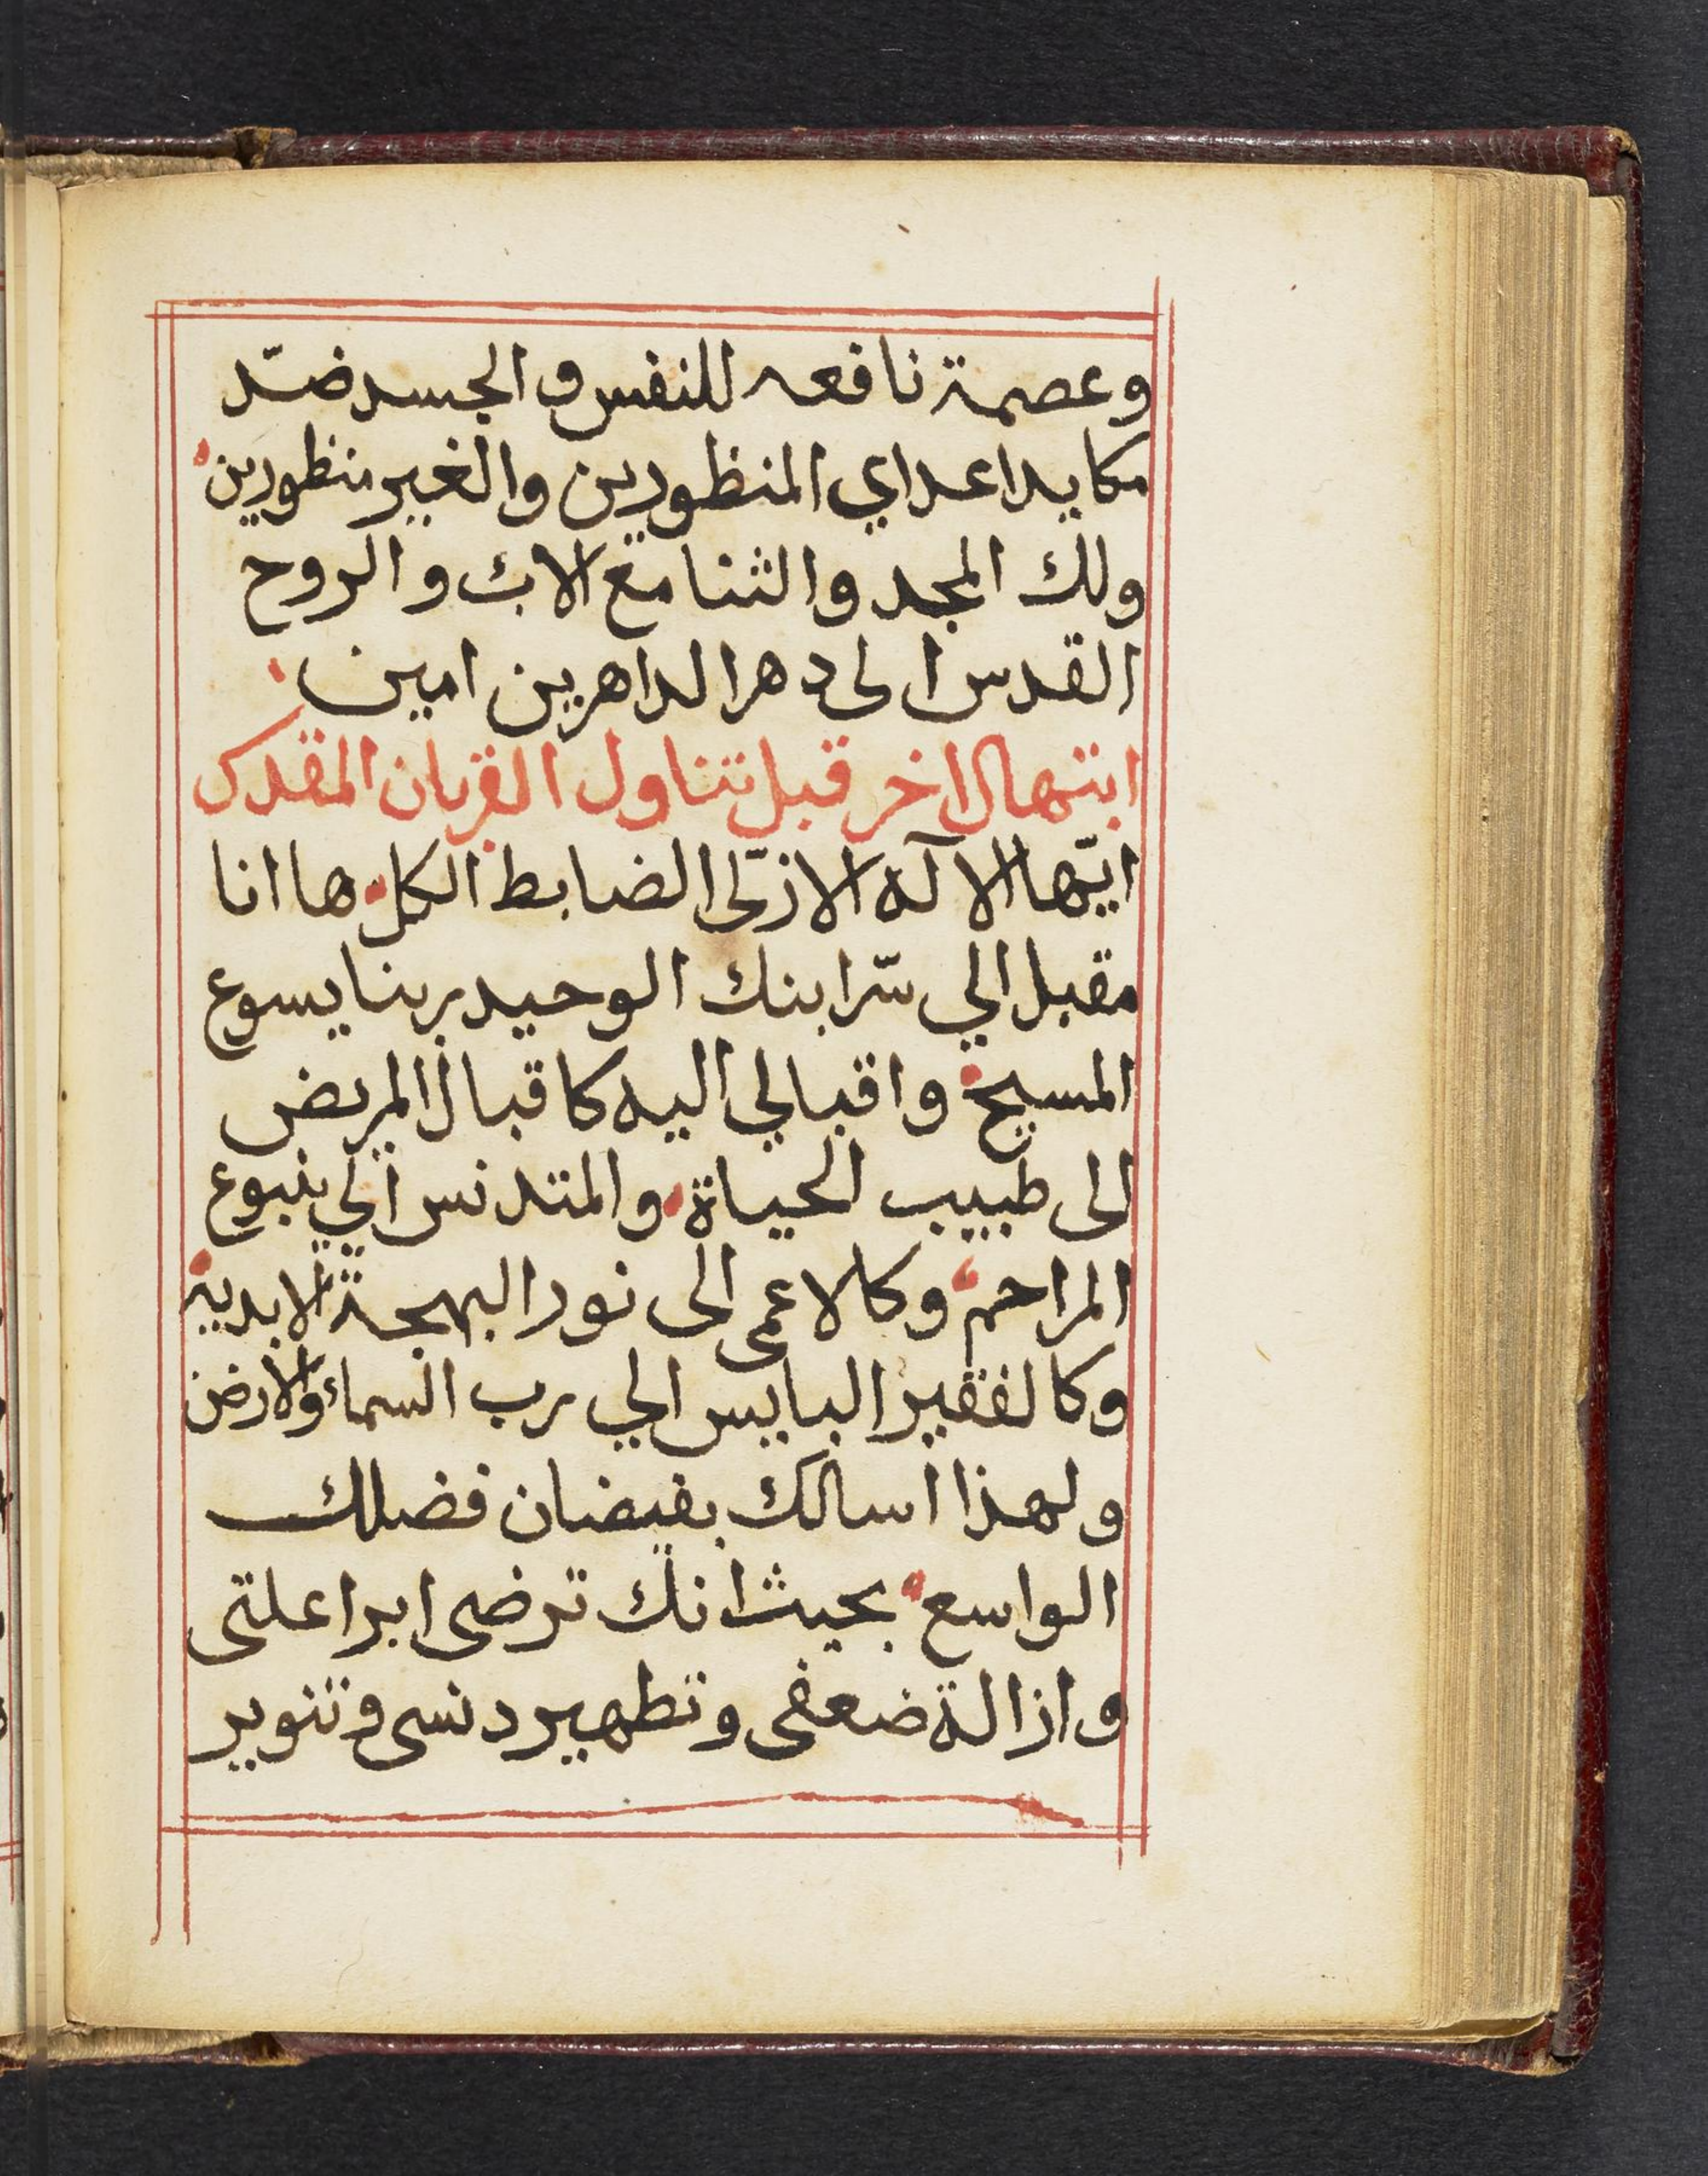 وعصمة نافعه للنفس والجسد ضدّ
مكايد اعداي المنظورين والغير منظورين
ولك المجد والثنا مع الاب والروح
القدس الى دهر الداهرين امين
ابتهال اخر قبل تناول القربان المقدس
ايّها الاله الازلّى الضابط الكل ها انا
مقبل الي سّر ابنك الوحيد ربنا يسوع
المسيح واقبالي اليه كاقبال المريض
الى طبيب الحياة والمتدنس الي ينبوع
المراحم وكالاعمى الى نور البهجة الابدية
وكالفقير البايس الي رب السماء والارض
ولهذا اسالك بفيضان فضلك
الواسع بحيث انك ترضى ابرا علتى
وازالة ضعفى وتطهير دنسى وتنوير